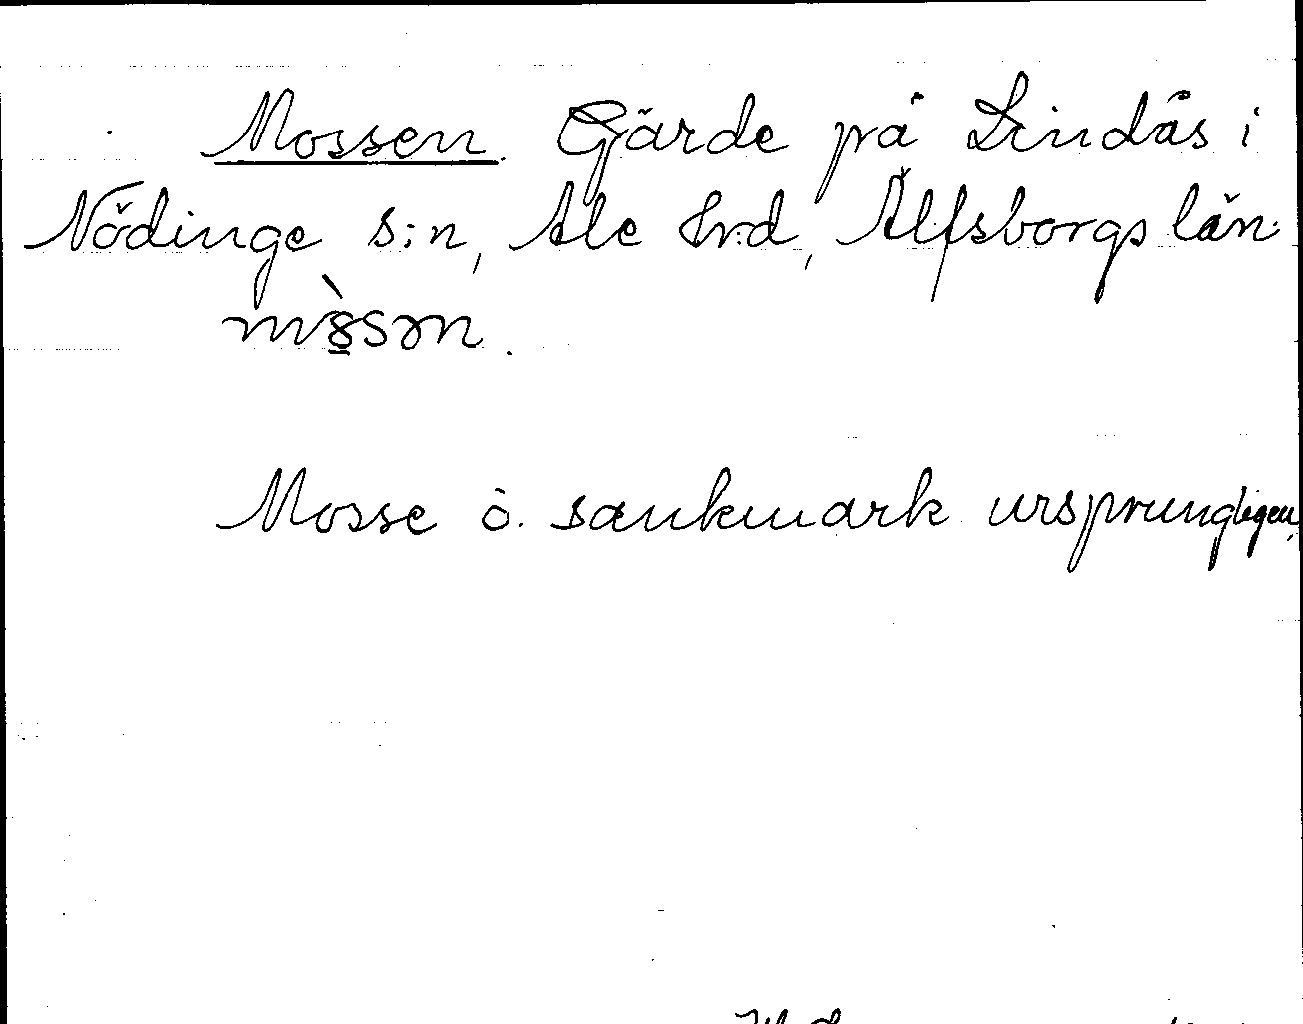 Mossen. Gärde på Lindås i
Nödinge s:n, Ale hrd, Älfsborgs län.
mòssən.
Mosse o. sankmark ursprungligen.